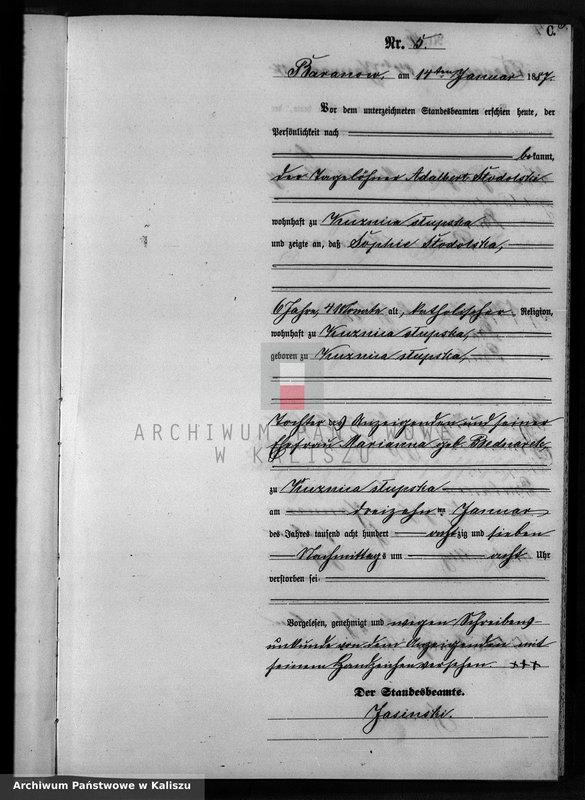 C.
Nr. 5.
Baranow, am 14ten Januar 1887.
Vor dem unterzeichneten Standesbeamten erschien heute, der
Persönlichkeit nach
bekannt,
der Tagelöhner Adalbert Słodolski
wohnhaft zu Kuznica słupska
und zeigte an, daß Sophie Słodolska,
6 Jahre, 4 Monate alt, katholischer Religion,
wohnhaft zu Kuznica słupska,
geboren zu Kuznica słupska,
Tochter des Anzeigenden und seiner
Ehefrau Marianna geb. Bednarek
zu Kuznica słupska
am dreizehnten Januar
des Jahres tausend acht hundert achtzig und sieben
Nachmittags um acht Uhr
verstorben sei
Vorgelesen, genehmigt und wegen Schreibens-
unkunde von dem Anzeigenden mit
seinem Handzeichen versehen. +++
Der Standesbeamte.
Jasinski.
ARCHIWUM PAŃSTWOWE
W KALISZU
Archiwum Państwowe w Kaliszu